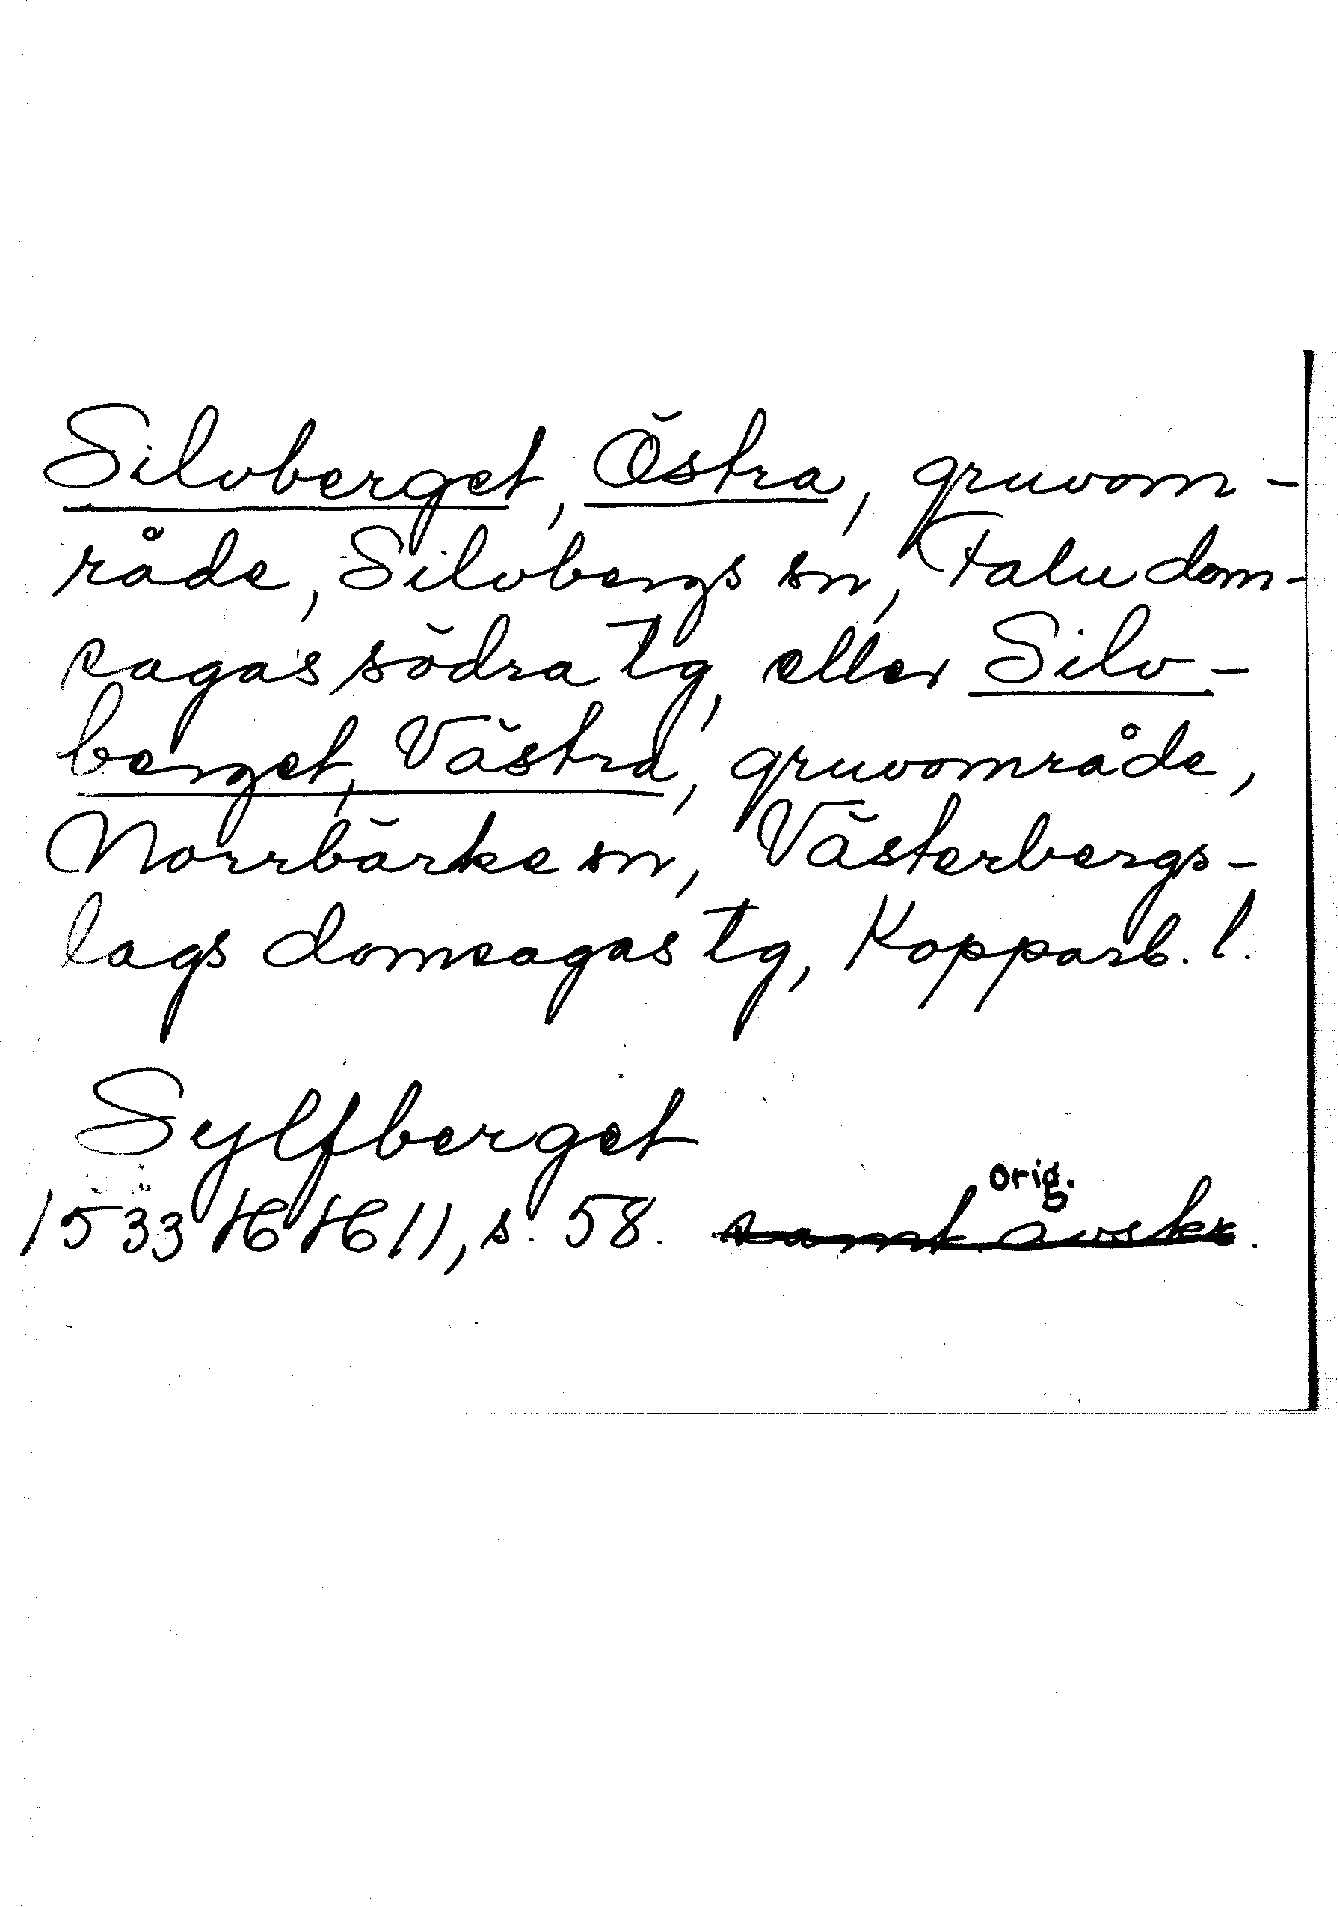 Silvberget, Östra, gruvom-
råde, Silvbergs sn, Falu dom-
sagas södra tg, eller Silv-
berget, Västra, gruvområde,
Norrbärke sn, Västerbergs-
lags domsagas tg, Kopparb. l.
Sylfberget
orig.
1533 HH 11, s. 58. samt. avskr.